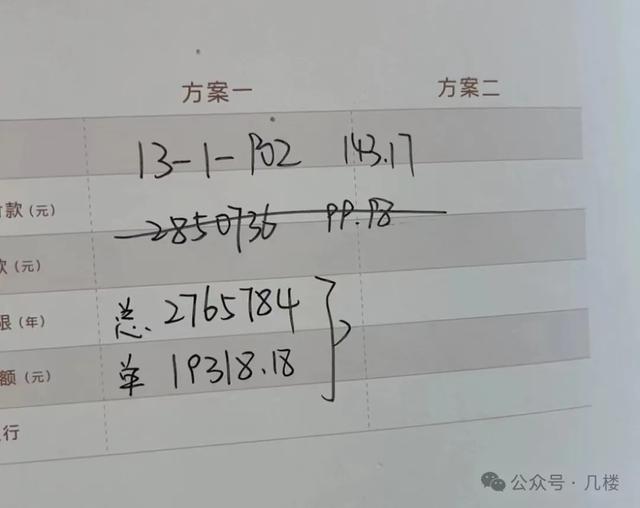 方案一 方案二
13-1-902 143.17
付款（元） 2850736
款（元）
限（年） 总 2765784
额（元） 单 19318.18
行
公众号·几楼